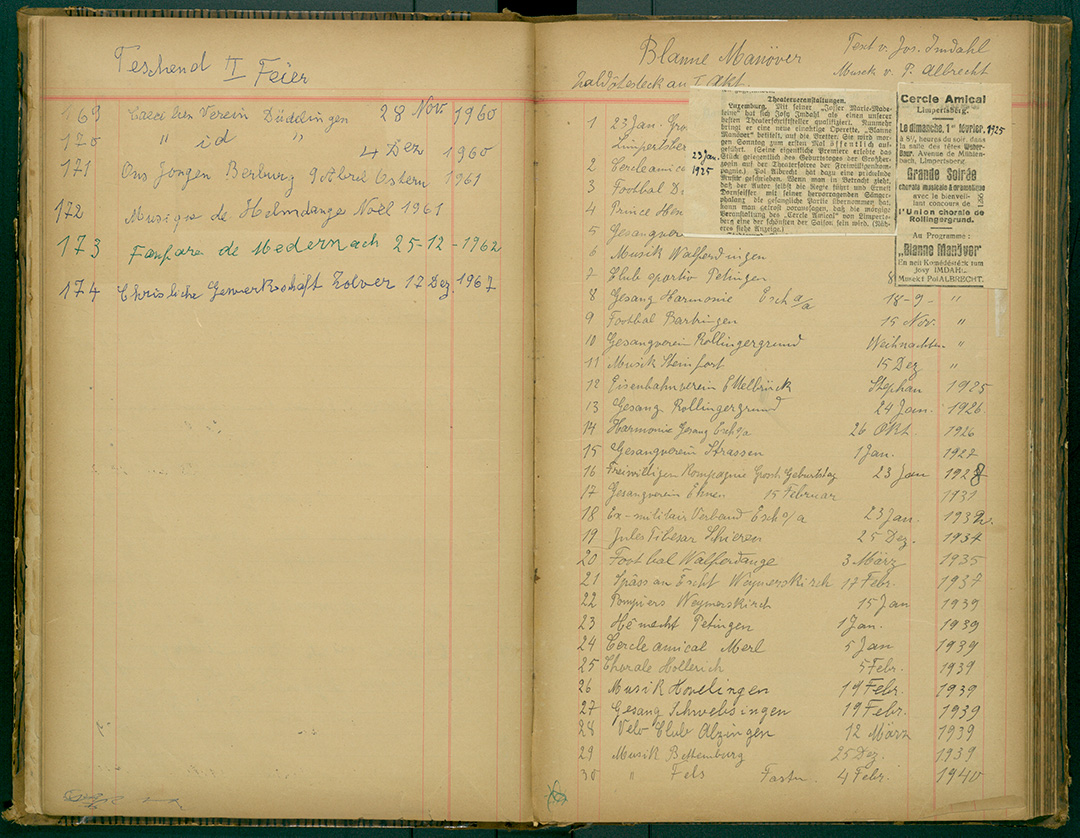 Teschend II Feier
169 Caecilien Verein Düdelingen 28 Nov 1960
170 " id " 4 Dez 1960
171 Ons Jongen Berburg Ostern 1961
172 Musique de Helmdange Noël 1961
173 Fanfare de Medernach 25-12-1962
174 Chrisliche Gewerkschaft Zolver 17 Dez. 1967
Blanne Manöver
Text v. Jos. Imdahl
Musek v. P. Albrecht
Zaldôtesteck an I Akt.
1 23 Jan. Gro
Limpertsber
2 Cercle amic
3 Footbal D
4 Prince Hen
5 Gesangvere
6 Musik Walferdingen
7 Club sportiv Petingen 8
8 Gesang Harmonie Esch a/a 18-9- "
9 Footbal Bartringen 15 Nov. "
10 Gesangverein Rollingergrund Weihnachten "
11 Musik Steinfort 15 Dez "
12 Eisenbahnverein Ettelbrück Stephan 1925
13 Gesang Rollingergrund 24 Jan. 1926
14 Harmonie Gesang Esch/a 26 Okt. 1926
15 Gesangverein Strassen 1 Jan. 1927
16 Freiwilligen Kompagnie Grossh. Geburtstag 23 Jan 1928
17 Gesangverein Ehnen 15 Februar 1931
18 Ex-militair Verband Esch a/a 23 Jan. 1932.
19 Jules Tibesar Schieren 25 Dez. 1934
20 Football Walferdange 3 März 1935
21 Spâss an Escht Weymerskirch 17 Febr. 1937
22 Pompiers Weymerskirch 15 Jan 1939
23 Hémecht Petingen 1 Jan. 1939
24 Cercle amical Merl 5 Jan 1939
25 Chorale Hollerich 5 Febr. 1939
26 Musik Hovelingen 19 Febr. 1939
27 Gesang Schwebsingen 19 Febr. 1939
28 Velo Club Alzingen 12 März 1939
29 Musik Bettemburg 25 Dez. 1939
30 " Fels Fastn. 4 Febr. 1940
23 Jan. 1925
Theaterveranstaltungen.
Luxemburg. Mit seiner „Joffer Marie-Made-
leine" hat sich Josy Imdahl als einen unserer
besten Theaterschriftsteller qualifiziert. Nunmehr
bringt er eine neue einaktige Operette, „Blanne
Manöver" betitelt, auf die Bretter. Sie wird mor-
gen Sonntag zum ersten Mal öffentlich auf-
geführt. (Seine eigentliche Premiere erlebte das
Stück gelegentlich des Geburtstages der Großher-
zogin auf der Theatersoiree der Freiwilligenkom-
pagnie.) Pol Albrecht hat dazu eine prickelnde
Musik geschrieben. Wenn man in Betracht zieht,
daß der Autor selbst die Regie führt und Ernest
Dornseiffer mit seiner hervorragenden Sänger-
phalanz die gesangliche Partie übernommen hat,
kann man getrost voraussagen, daß die morgige
Veranstaltung des „Cercle Amical" von Limperts-
berg eine der schönsten der Saison sein wird. (Nähe-
res siehe Anzeige.)
Cercle Amical
Limpertsberg.
Le dimanche, 1er février, 1925
à 8½ heures du soir, dans
la salle des têtes
Avenue de Mühlen-
bach, Limpertsberg.
Grande Soirée
chorale musicale & dramatique
avec le bienveil-
lant concours de
l'Union chorale de
Rollingergrund.
Au Programme:
„Blanne Manöver"
En neit Komédéstéck vum
Josy IMDAHL.
Musek: Pol ALBRECHT.